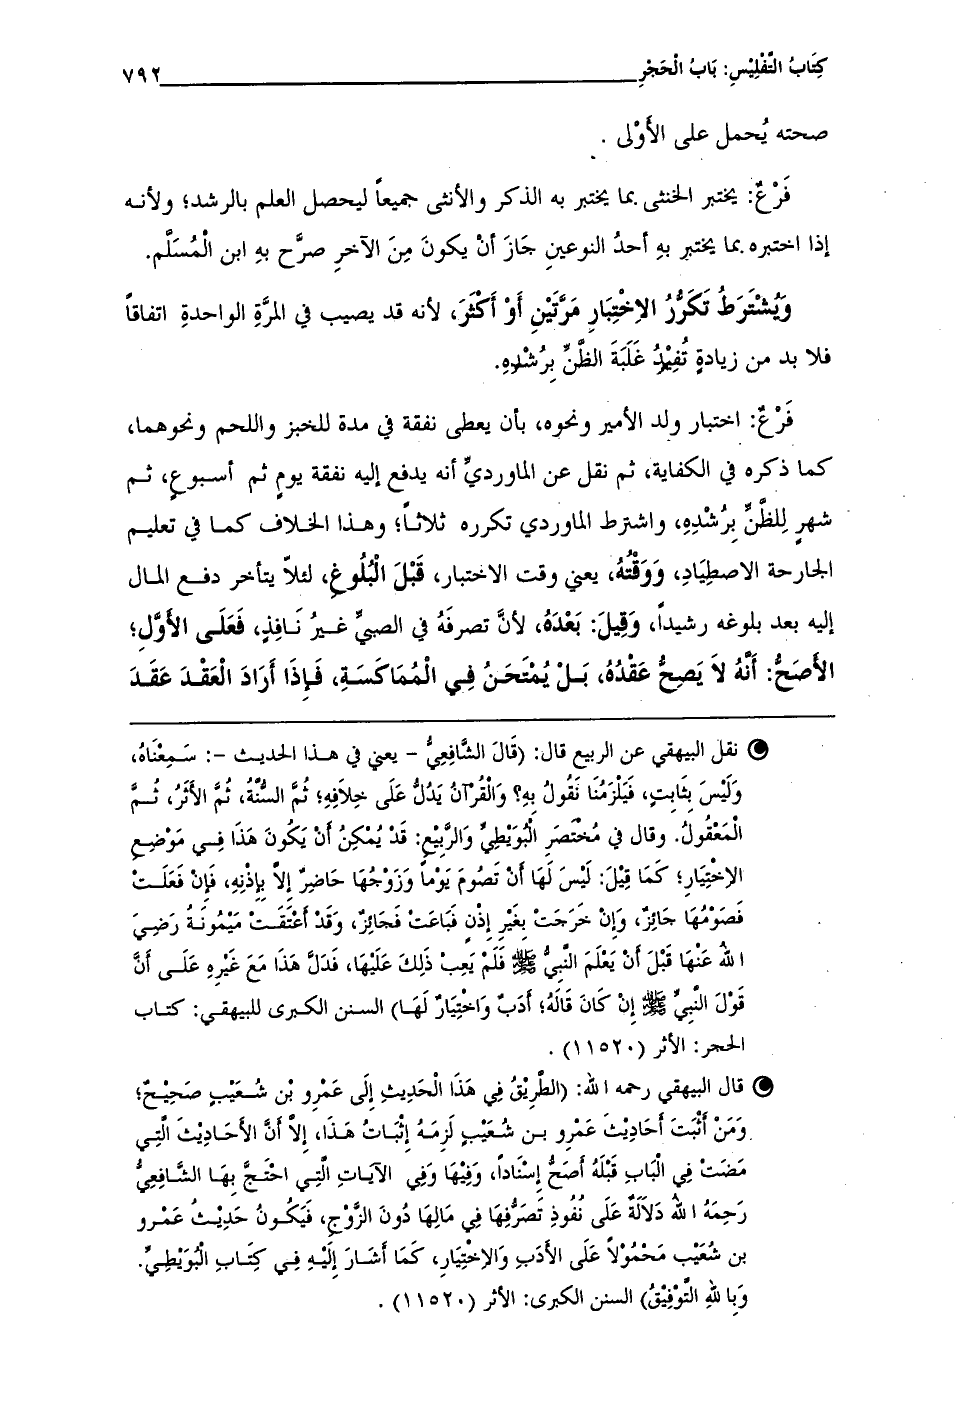 كِتَابُ التَّفْلِيْسِ: بَابُ الْحَجْرِ ٧٩٢
صحته يُحمل على الأَوْلى .
فَرْعٌ: يختبر الخنثى بما يختبر به الذكر والأنثى جميعاً ليحصل العلم بالرشد؛ ولأنه
إذا اختبره بما يختبر بهِ أحدُ النوعينِ جَازَ أنْ يكونَ مِنَ الآخرِ صرَّح بهِ ابن الْمُسَلَّم.
وَيُشْتَرَطُ تَكَرُّرُ الاِخْتِبَارِ مَرَّتَيْنِ أَوْ أَكْثَرَ، لأنه قد يصيب في المرَّةِ الواحدةِ اتفاقاً
فلا بد من زيادةٍ تُفِيْدُ غَلَبَةَ الظَّنِّ بِرُشْدِهِ.
فَرْعٌ: اختبار ولد الأمير ونحوه، بأن يعطى نفقة في مدة للخبز واللحم ونحوهما،
كما ذكره في الكفاية، ثم نقل عن الماورديِّ أنه يدفع إليه نفقة يومٍ ثم أسبوعٍ، ثم
شهرٍ لِلظَّنِّ بِرُشْدِهِ، واشترط الماوردي تكرره ثلاثاً؛ وهذا الخلاف كما في تعليم
الجارحة الاصطِيَادِ، وَوَقْتُهُ، يعني وقت الاختبار، قَبْلَ الْبُلُوغِ، لئلاّ يتأخر دفع المال
إليه بعد بلوغه رشيداً، وَقِيلَ: بَعْدَهُ، لأنَّ تصرفَهُ في الصبيِّ غيرُ نَافِذٍ، فَعَلَى الأَوَّلِ؛
الأَصَحُّ: أَنَّهُ لاَ يَصِحُّ عَقْدُهُ، بَلْ يُمْتَحَنُ فِي الْمُمَاكَسَةِ، فَإِذَا أَرَادَ الْعَقْدَ عَقَدَ
نقل البيهقي عن الربيع قال: (قَالَ الشَّافِعِيُّ - يعني في هذا الحديث -: سَمِعْنَاهُ،
وَلَيْسَ بِثَابِتٍ، فَيَلْزَمُنَا نَقُولُ بِهِ؟ وَالْقُرْآنُ يَدُلُّ عَلَى خِلاَفِهِ؛ ثُمَّ السُّنَّةُ، ثُمَّ الأَثَرُ، ثُمَّ
الْمَعْقُولُ. وقال في مُخْتَصَرِ الْبُوَيْطِيِّ وَالرَّبِيْعِ: قَدْ يُمْكِنُ أَنْ يَكُونَ هَذَا فِي مَوْضِعِ
الاِخْتِيَارِ؛ كَمَا قِيْلَ: لَيْسَ لَهَا أَنْ تَصُومَ يَوْماً وَزَوْجُهَا حَاضِرٌ إِلاَّ بِإِذْنِهِ، فَإِنْ فَعَلَتْ
فَصَوْمُهَا جَائِزٌ، وَإِنْ خَرَجَتْ بِغَيْرِ إِذْنٍ فَبَاعَتْ فَجَائِزٌ، وَقَدْ أَعْتَقَتْ مَيْمُونَةُ رَضِيَ
اللهُ عَنْهَا قَبْلَ أَنْ يَعْلَمَ النَّبِيُّ ﷺ فَلَمْ يَعِبْ ذَلِكَ عَلَيْهَا، فَدَلَّ هَذَا مَعَ غَيْرِهِ عَلَى أَنَّ
قَوْلَ النَّبِيِّ ﷺ إِنْ كَانَ قَالَهُ؛ أَدَبٌ وَاخْتِيَارٌ لَهَا) السنن الكبرى للبيهقي: كتاب
الحجر: الأثر (١١٥٢٠) .
قال البيهقي رحمه الله: (الطَّرِيْقُ فِي هَذَا الْحَدِيثِ إِلَى عَمْرِو بْنِ شُعَيْبٍ صَحِيْحٌ؛
وَمَنْ أَثْبَتَ أَحَادِيْثَ عَمْرِو بن شُعَيْبٍ لَزِمَهُ إِثْبَاتُ هَذَا، إِلاَّ أَنَّ الأَحَادِيْثَ الَّتِي
مَضَتْ فِي الْبَابِ قَبْلَهُ أَصَحُّ إِسْنَاداً، وَفِيْهَا وَفِي الآيَاتِ الَّتِي احْتَجَّ بِهَا الشَّافِعِيُّ
رَحِمَهُ اللهُ دَلاَلَةٌ عَلَى نُفُوذِ تَصَرُّفِهَا فِي مَالِهَا دُونَ الزَّوْجِ، فَيَكُونُ حَدِيْثُ عَمْرِو
بن شُعَيْب مَحْمُوْلاً عَلَى الأَدَبِ وَالاِخْتِيَارِ، كَمَا أَشَارَ إِلَيْهِ فِي كِتَابِ الْبُوَيْطِيِّ.
وَبِاللهِ التَّوْفِيْقُ) السنن الكبرى: الأثر (١١٥٢٠) .